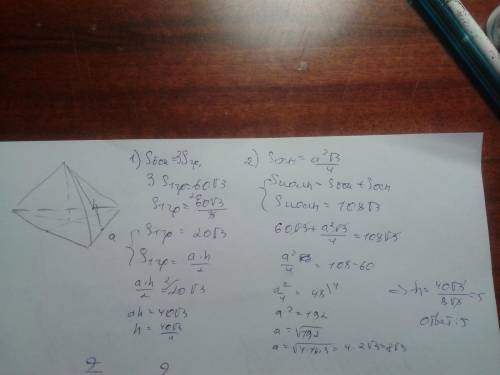 1) Sбок=3Sгр,
3 S1гр=60√3
S1гр=60√3/3
S1гр = 20√3
S1гр = a·h/2
a·h/2 = 20√3
ah=40√3
h=40√3/a
a
h
2) Sосн=a²√3/4
Sполн= Sбок+Sосн
Sполн=108√3
60√3+a²√3/4=108√3
a²/4=108-60
a²/4=48
a²=192
a=√192
a=√4·16·3=4·2√3=8√3
=>h=40√3/8√3=5
Ответ:5